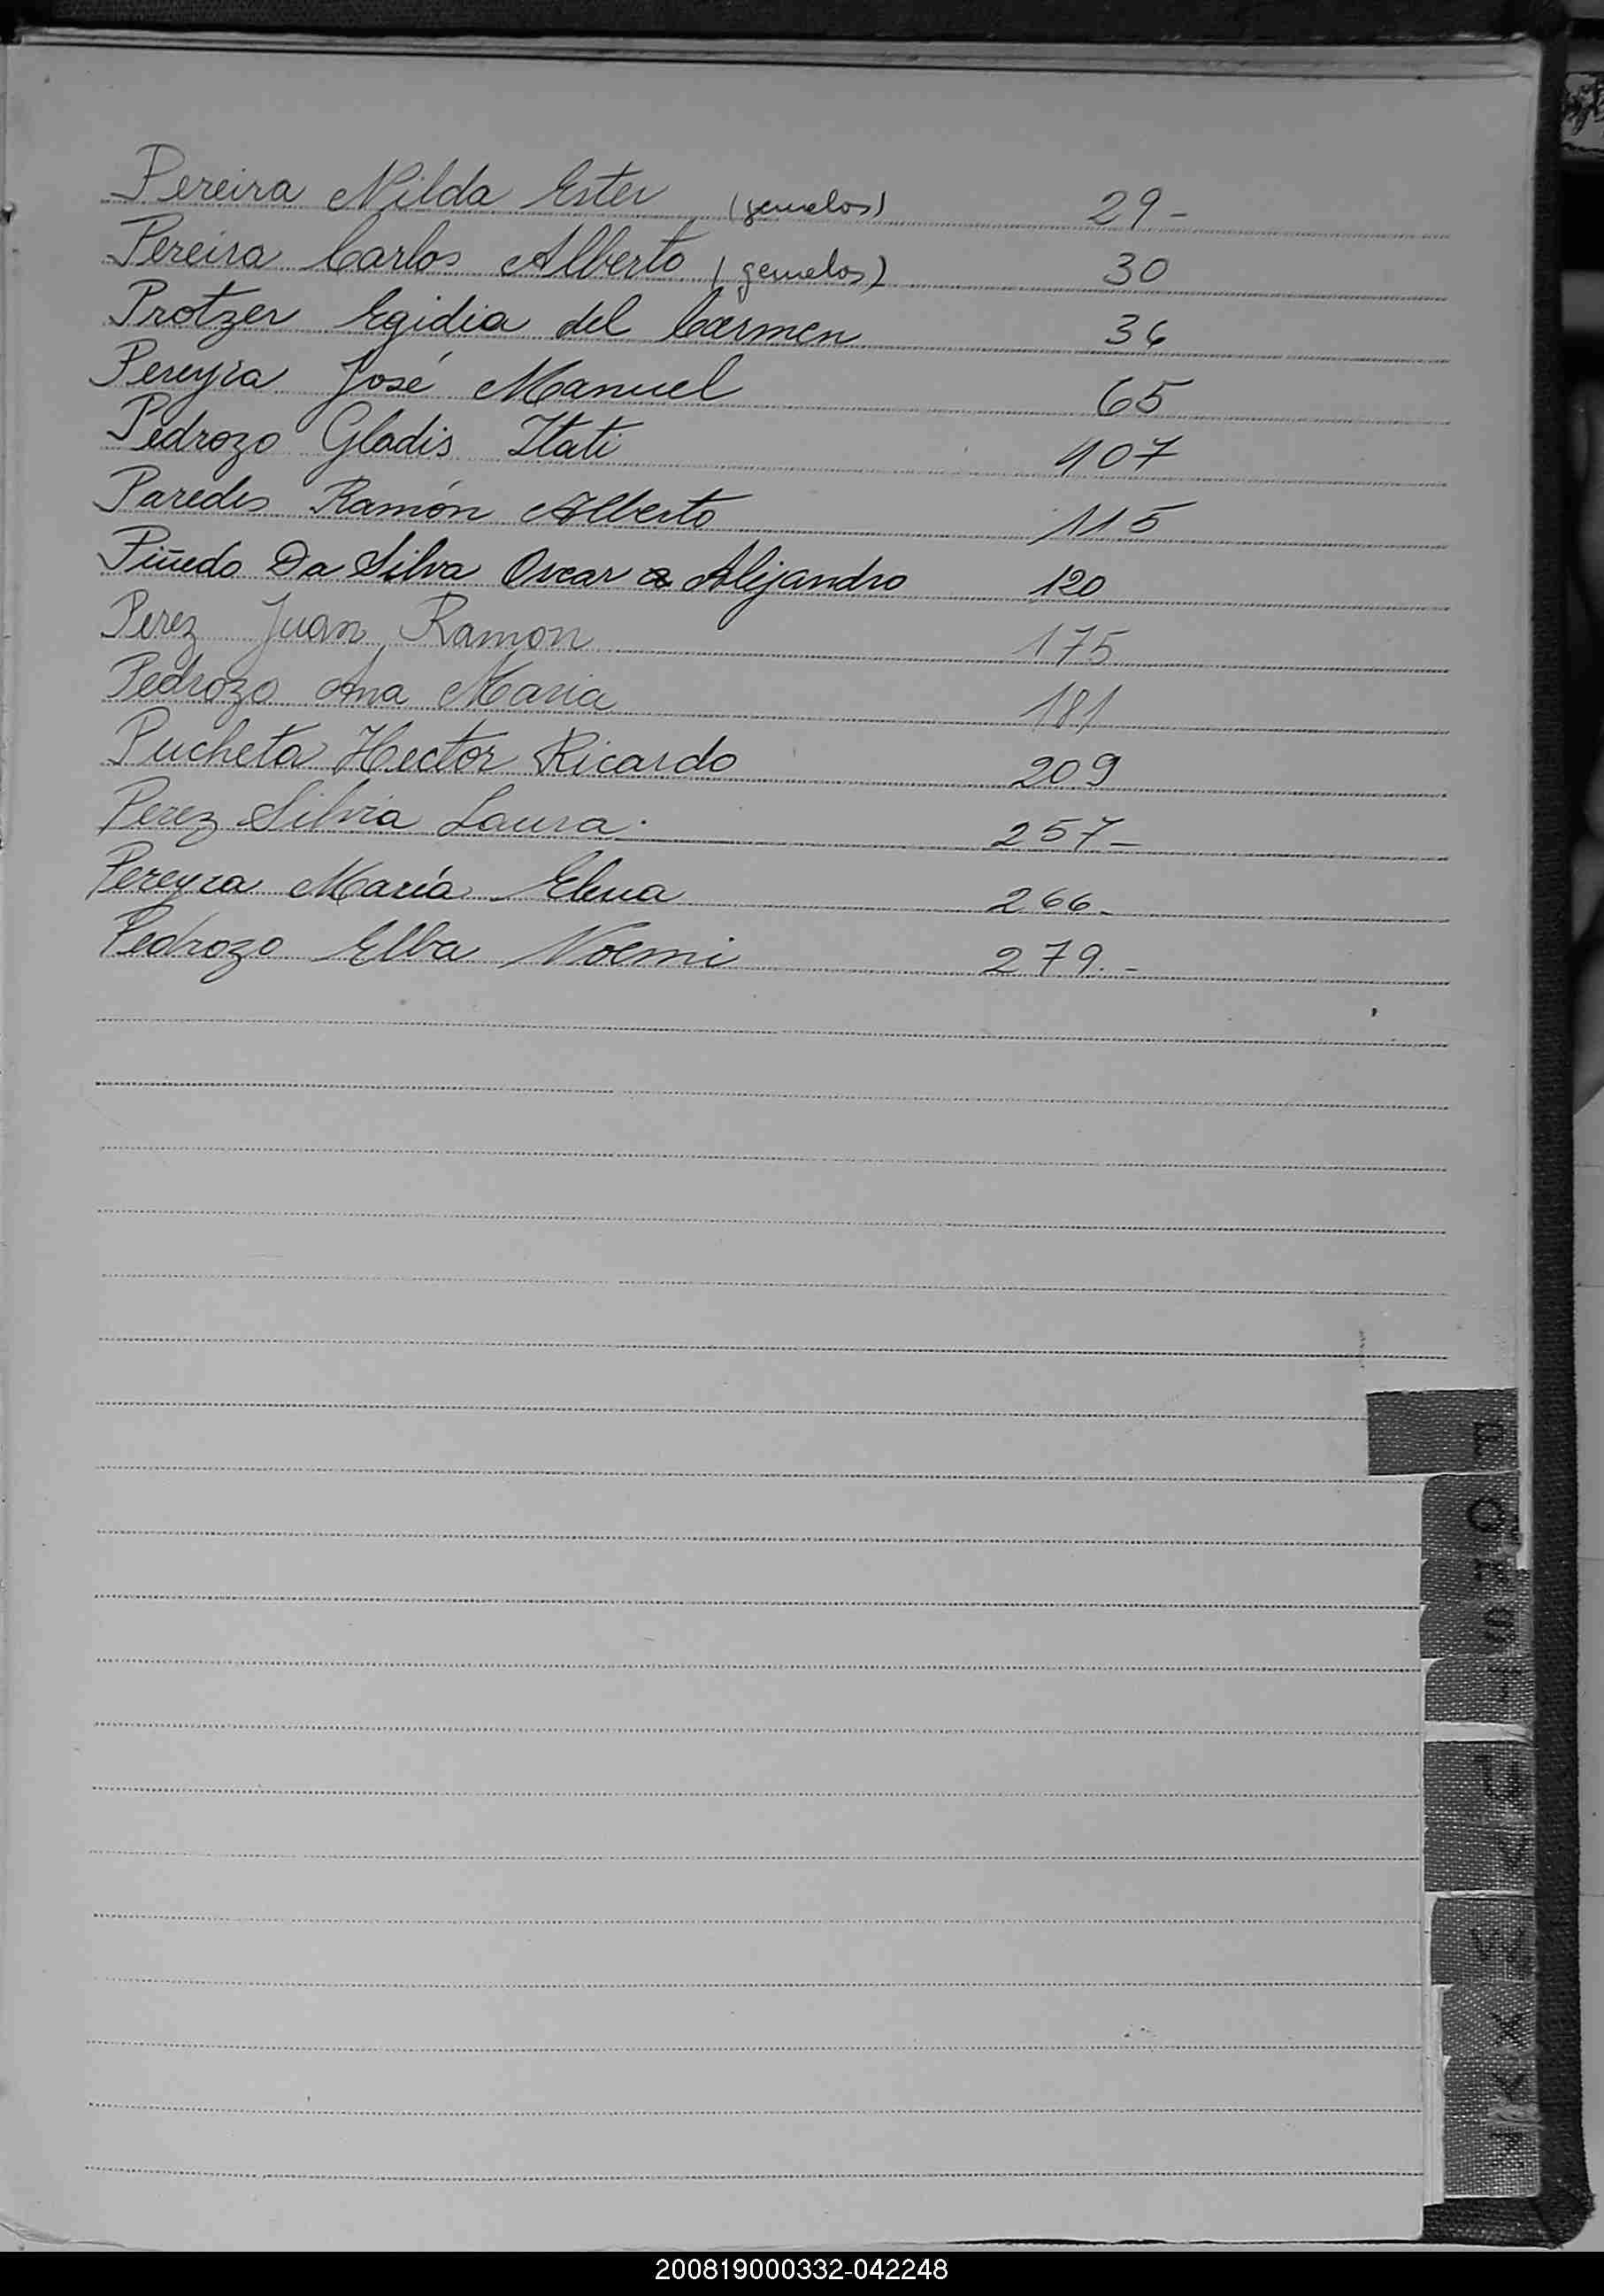 Pereira Nilda Ester (gemelos) 29-
Pereira Carlos Alberto (gemelos) 30
Protzer Egidia del Carmen 36
Pereyra José Manuel 65
Pedrozo Gladis Itati 107
Paredes Ramón Alberto 115
Piñedo Da Silva Oscar Alejandro 120
Perez Juan Ramon 175
Pedrozo Ana Maria 181
Pucheta Hector Ricardo 209
Perez Silvia Laura. 257-
Pereyra María Elena 266-
Pedrozo Elba Noemi 279.-
P
Q
R
S
T
U
V
W
X
Y
200819000332-042248